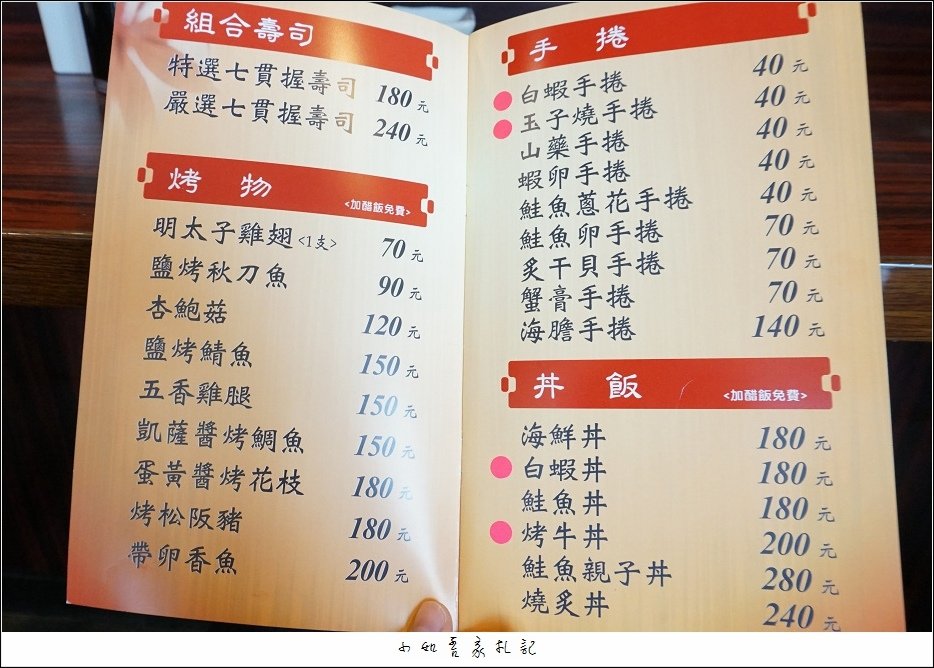 組合壽司
特選七貫握壽司 180元
嚴選七貫握壽司 240元
烤物 <加醋飯免費>
明太子雞翅<1支> 70元
鹽烤秋刀魚 90元
杏鮑菇 120元
鹽烤鯖魚 150元
五香雞腿 150元
凱薩醬烤鯛魚 150元
蛋黃醬烤花枝 180元
烤松阪豬 180元
帶卵香魚 200元
手捲
白蝦手捲 40元
玉子燒手捲 40元
山藥手捲 40元
蝦卵手捲 40元
鮭魚蔥花手捲 40元
鮭魚卵手捲 70元
炙干貝手捲 70元
蟹膏手捲 70元
海膽手捲 140元
丼飯 <加醋飯免費>
海鮮丼 180元
白蝦丼 180元
鮭魚丼 180元
烤牛丼 200元
鮭魚親子丼 280元
燒炙丼 240元
小如吾家札記